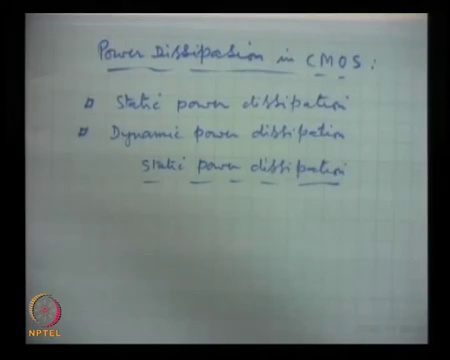 Power Dissipation in CMOS:
▫ Static power dissipation
▫ Dynamic power dissipation
Static power dissipation
NPTEL